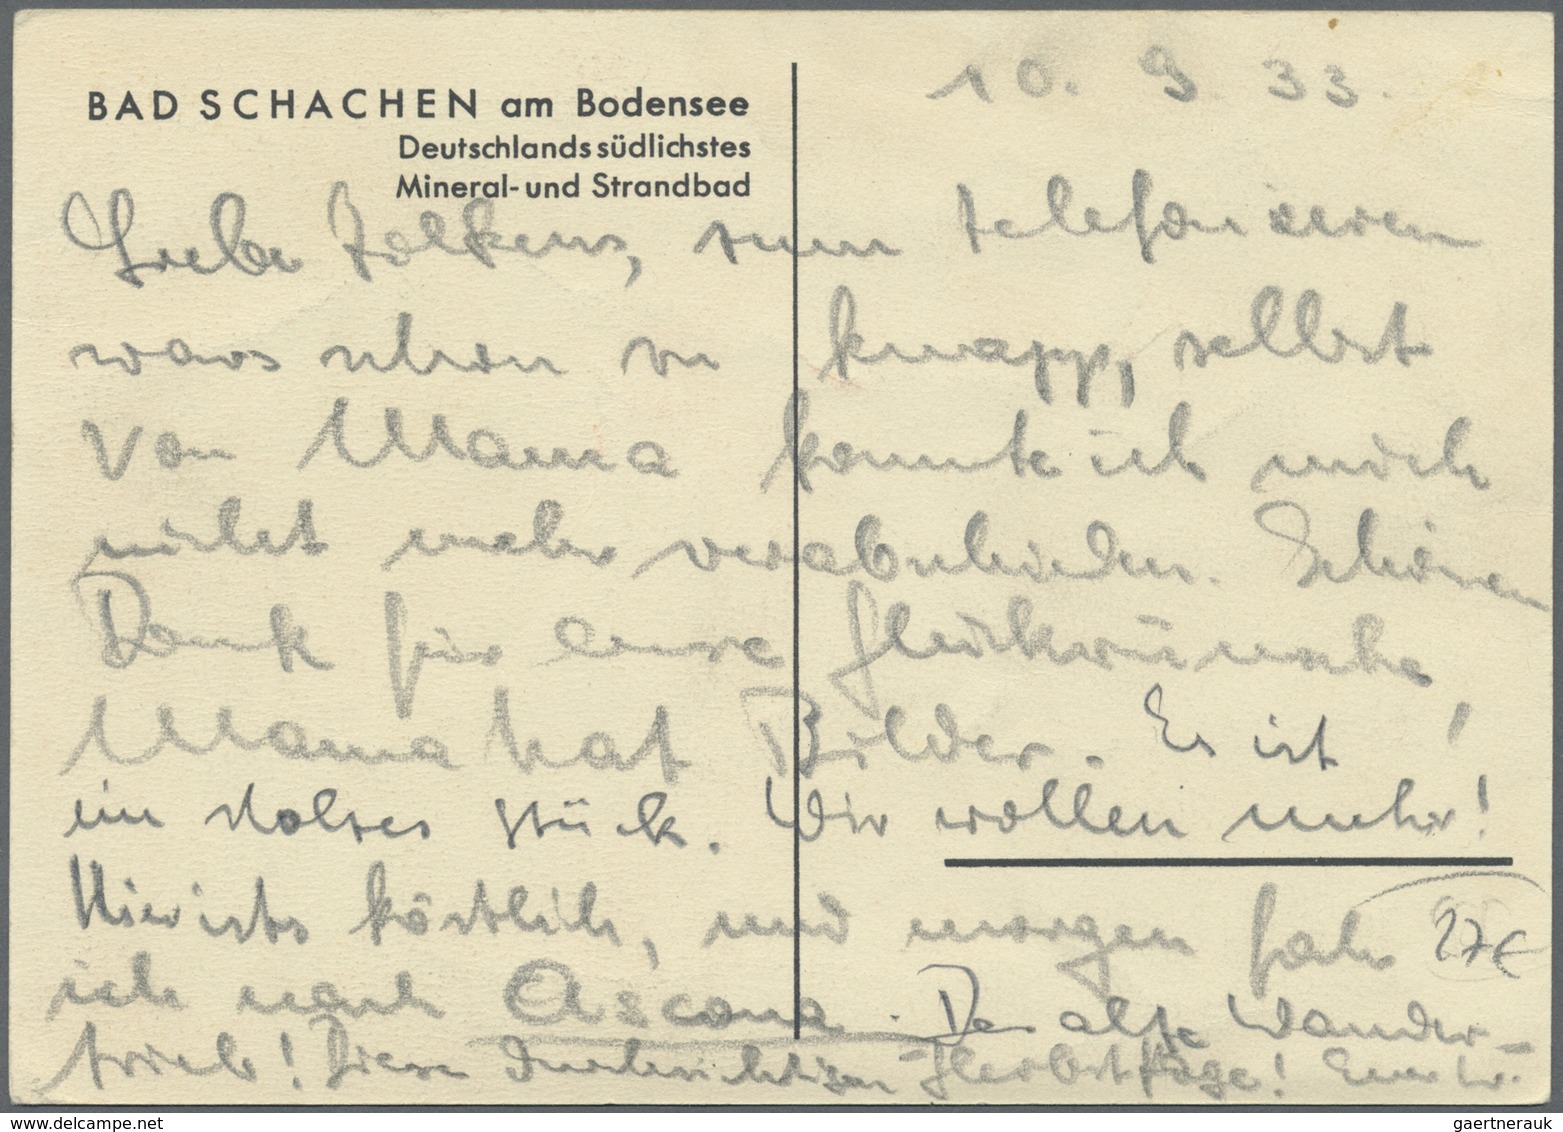 10. 9. 33.
BAD SCHACHEN am Bodensee
Deutschlands südlichstes
Mineral- und Strandbad
Liebe Folkens, zum telefonieren
wars schon zu knapp, selbst
von Mama konnte ich mich
nicht mehr verabschieden. Schönen
Dank für eure Glückwünsche!
Mama hat Bilder. Es ist
ein stolzes Stück. Wir wollen mehr!
Hier ists köstlich, und morgen fahr
27€
ich nach Ascona. Der alte Wander-
trieb! Diese durchsichtigen Herbsttage! Euer W.
www.delcampe.net
gaertnerauk